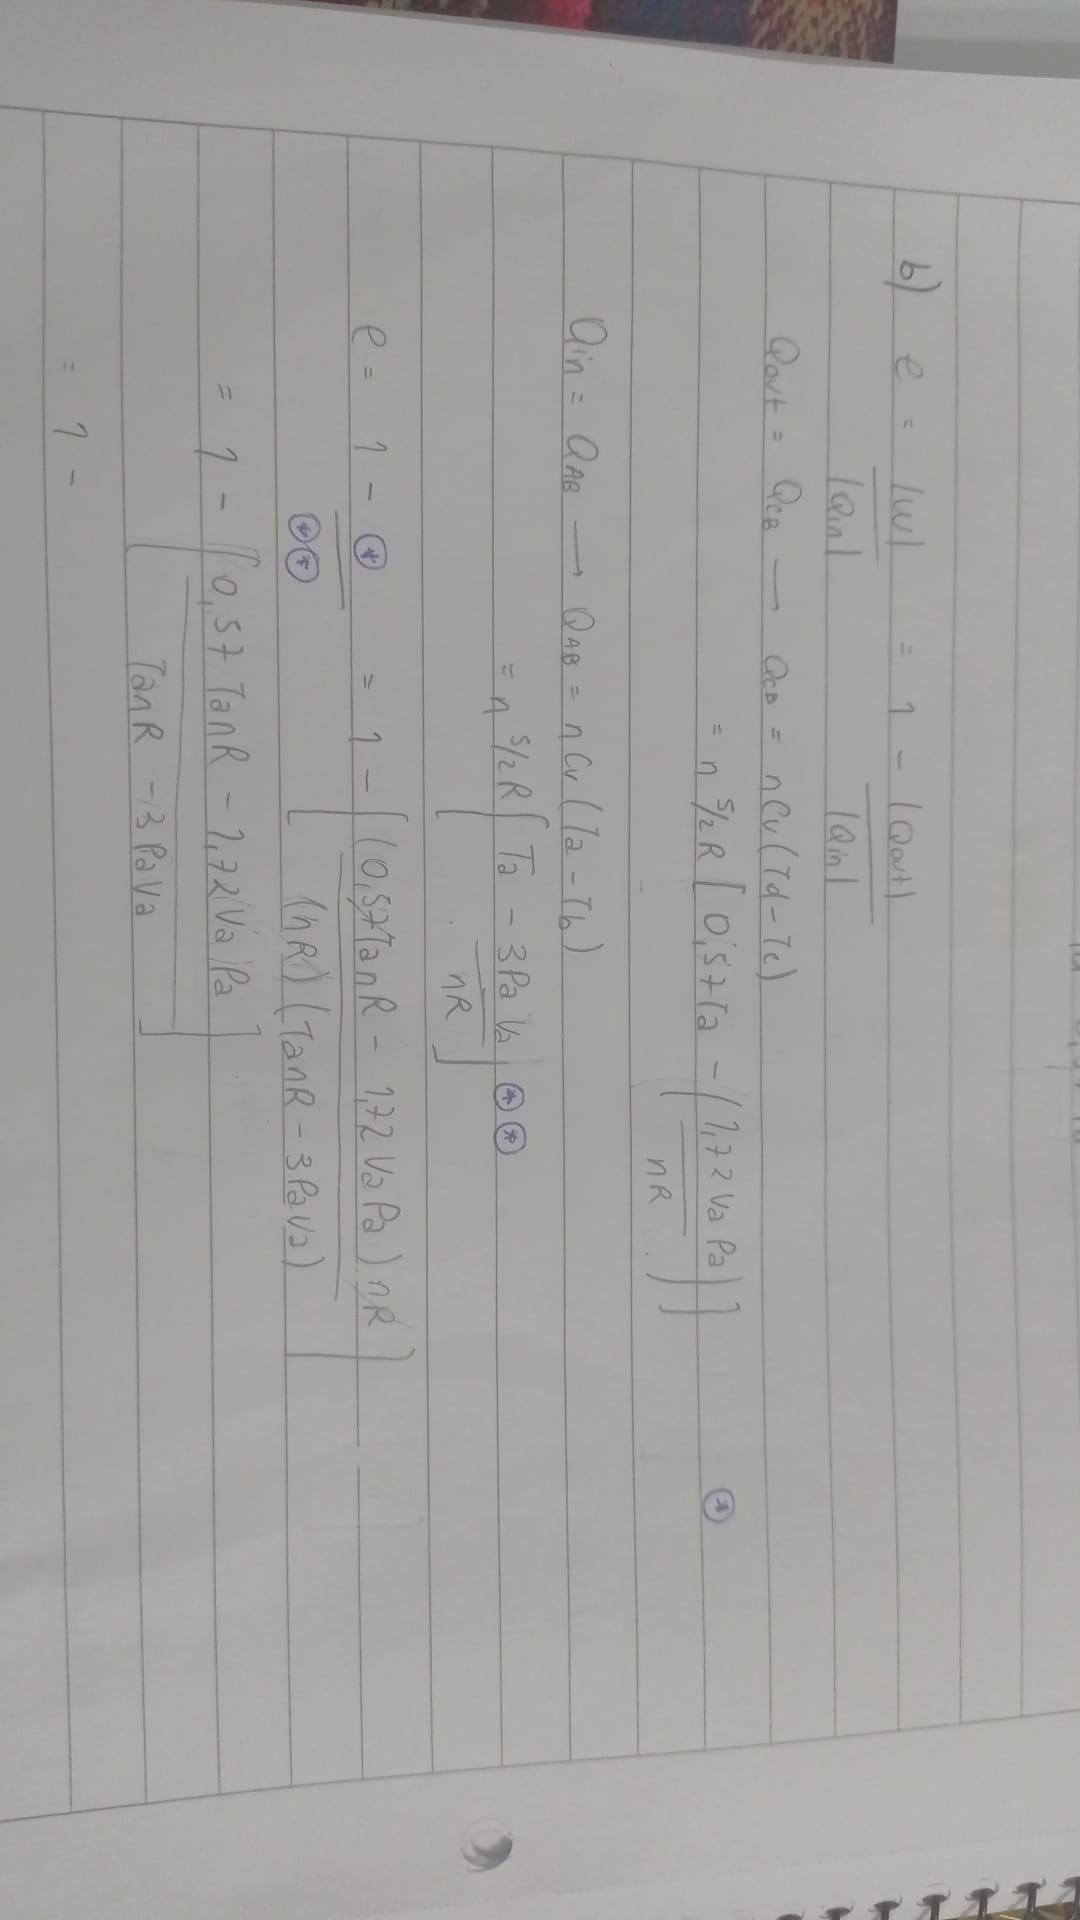 b) e = |W| / |Qin| = 1 - |Qout| / |Qin|
Qout = QCB → QCB = nCv (Td - Tc)
= n 5/2 R [0,57Ta - (1,72 Va Pa / nR)] (*)
Qin = QAB → QAB = nCv (Ta - Tb)
= n 5/2 R [Ta - 3PaVa / nR] (*) (*)
e = 1 - (*) / (*)(*) = 1 - [(0,57TanR - 1,72 VaPa) nR / (nR) (TanR - 3PaVa)]
= 1 - [0,57 TanR - 1,72 Va Pa / TanR - 3PaVa]
= 1 -